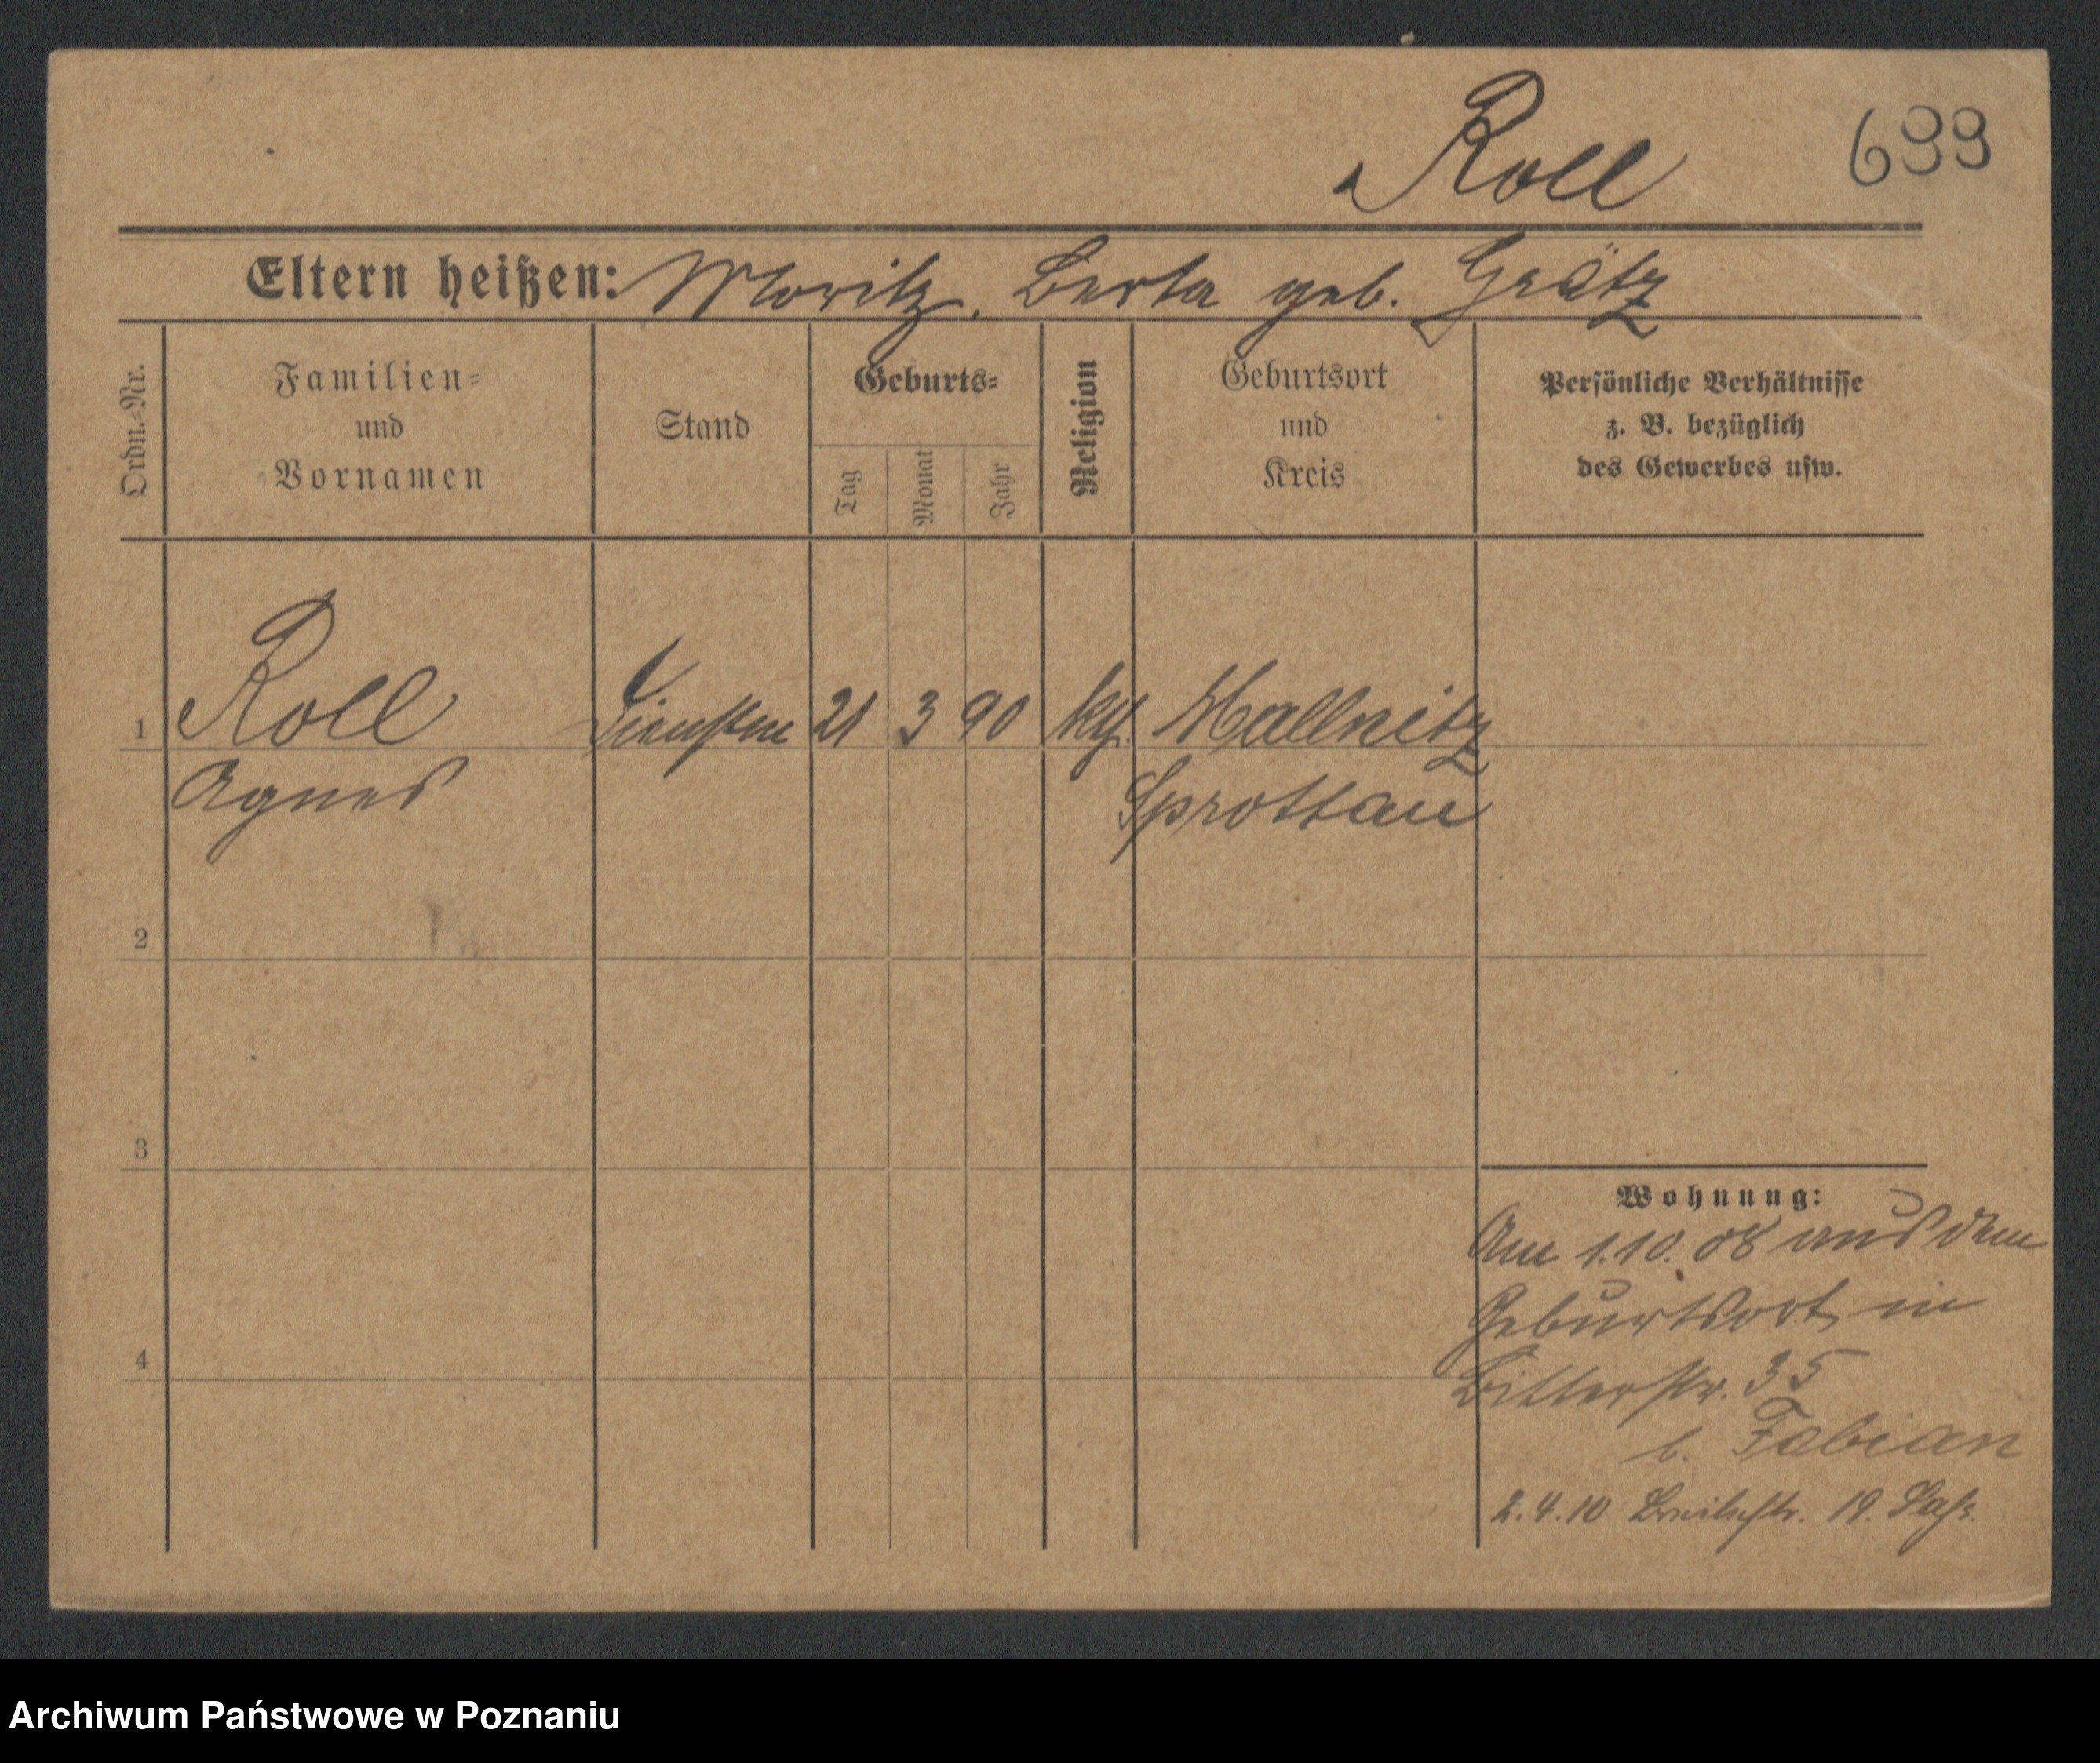 Roll 699
Eltern heißen: Moritz, Berta geb. Grätz
Ordn.=Nr.
Familien=
und
Vornamen
Stand
Geburts=
Tag
Monat
Jahr
Religion
Geburtsort
und
Kreis
Persönliche Verhältnisse
z. B. bezüglich
des Gewerbes usw.
1 Roll 21 3 90 Mallnitz
Agnes Sprottau
2
3
4
Wohnung:
Am 1.10.08 aus dem
Geburtsort in
Ritterstr. 35
b. Fabian
2.4.10 19.
Archiwum Państwowe w Poznaniu